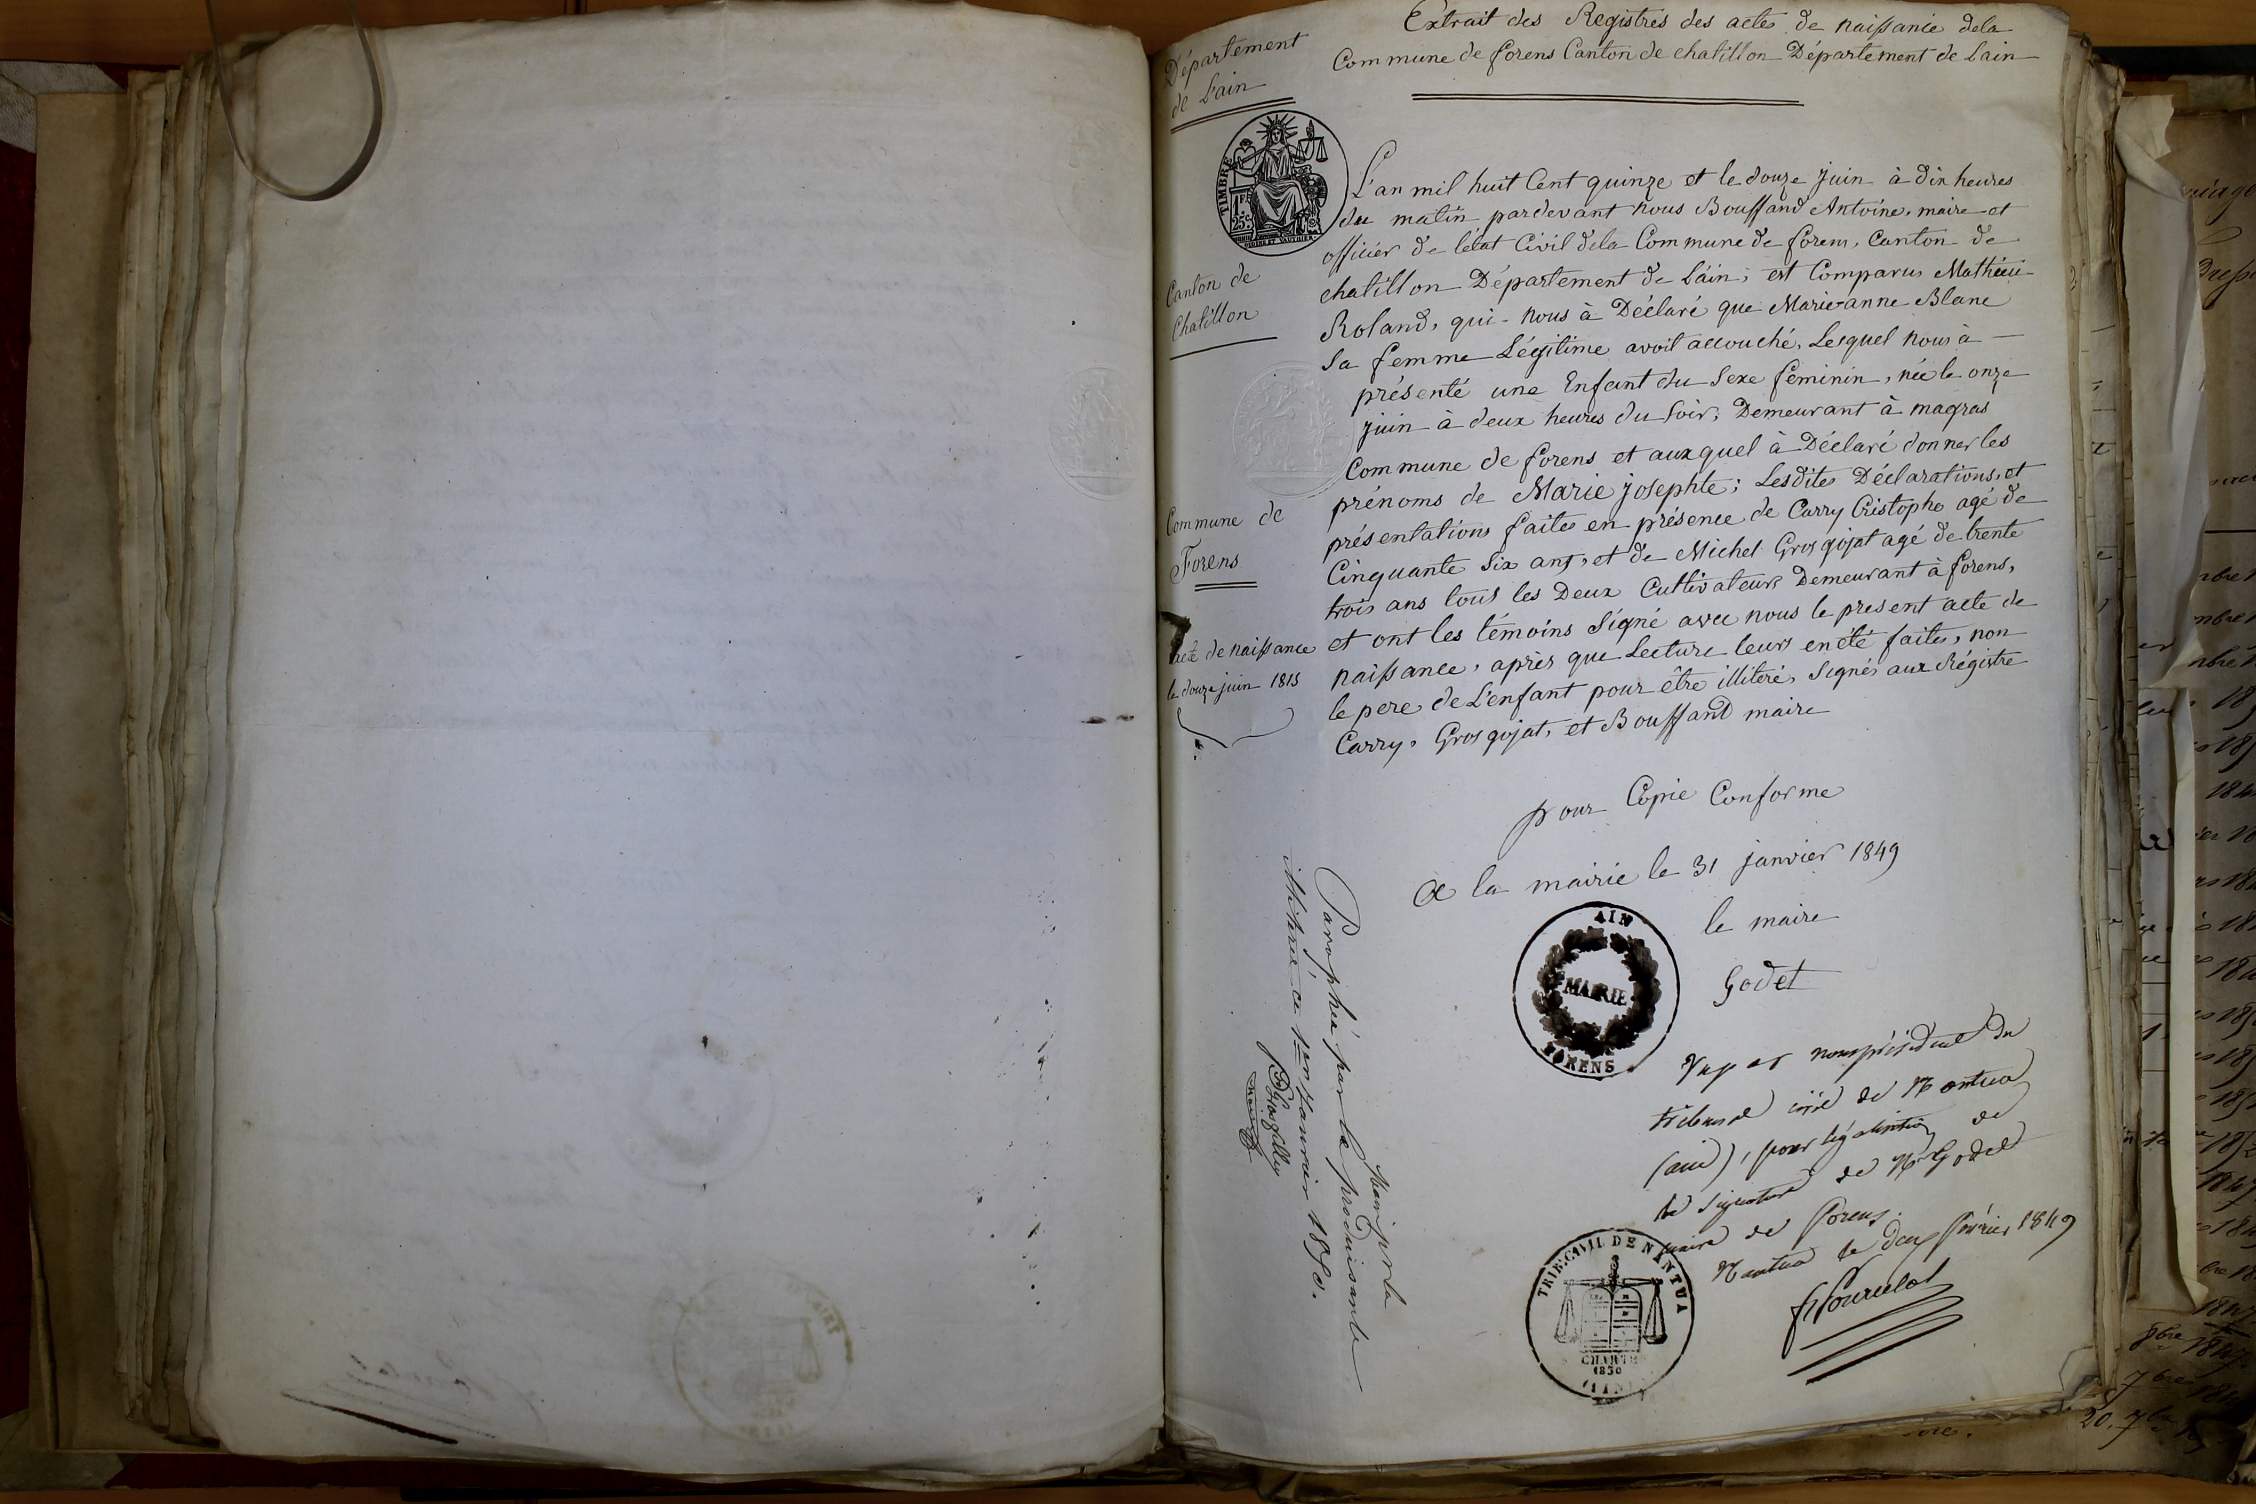 Extrait des Registres des actes de naissance dela
Commune de forens Canton de chatillon Département de Lain
Département
de L'ain
TIMBRE
1 FR
25 c.
Canton de
Chatillon
Commune de
Forens
acte de naissance
le douze juin 1815
L'an mil huit Cent quinze et le douze juin à dix heures
du matin pardevant nous Bouffand Antoine, maire et
officier de létat Civil dela Commune de forens, Canton de
chatillon Département de Láin; est Comparus Mathieu
Roland, qui nous à Déclaré que Marie anne Blanc
sa femme Légitime avoit accouché, Lequel nous à
présenté une Enfant du Sexe feminin, née le onze
juin à deux heures du soir, Demeurant à magras
Commune de forens et auxquel à Déclaré donner les
prénoms de Marie josephte; Lesdites Déclarations, et
présentations faites en présence de Carry Cristophe agé de
Cinquante Six ans, et de Michel Grosgojat agé de trente
trois ans tous les Deux Cultivateurs Demeurant à forens,
et ont les témoins signé avec nous le present acte de
naissance, après que Lecture leurs en été faites, non
le pere de L'enfant pour être illiteré, signés aux Régistre
Carry, Grosgojat, et Bouffand maire
pour Copie Conforme
a la mairie le 31 janvier 1849
le maire
Godet
AIN
MAIRIE
FORENS
Vu par nous président du
tribunal civil de Nantua
(ain), pour légalisation de
la signature de Mr Godet
maire de forens.
Nantua le deux février 1849
TRIB. CIVIL DE NANTUA
CHARTE
1830
(AIN)
Paraphée par la produisante